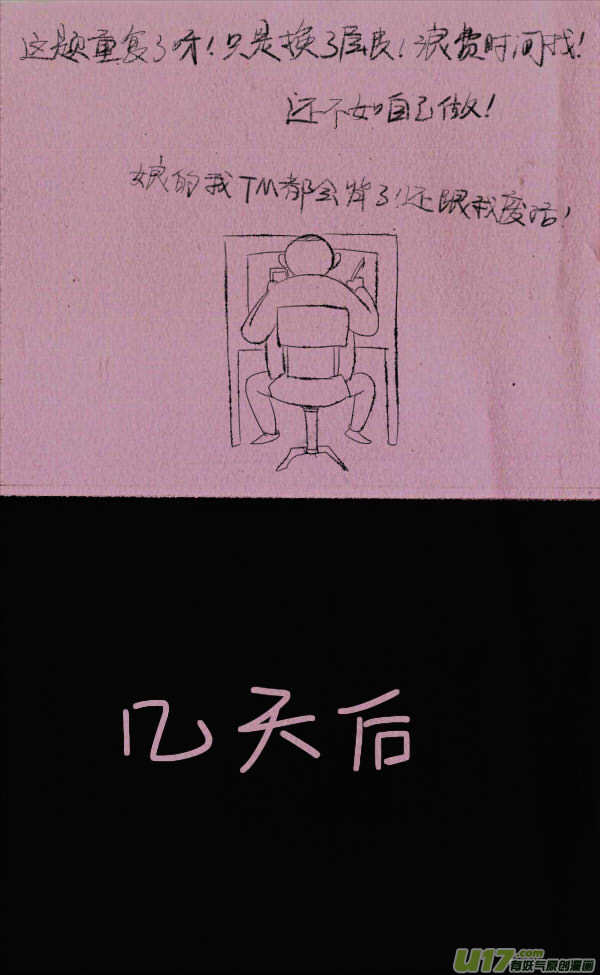 这题重复了呀!只是换了层皮!浪费时间找!
还不如自己做!
娘的我TM都会背了!还跟我废话!
几天后
U17.com
有妖气原创漫画